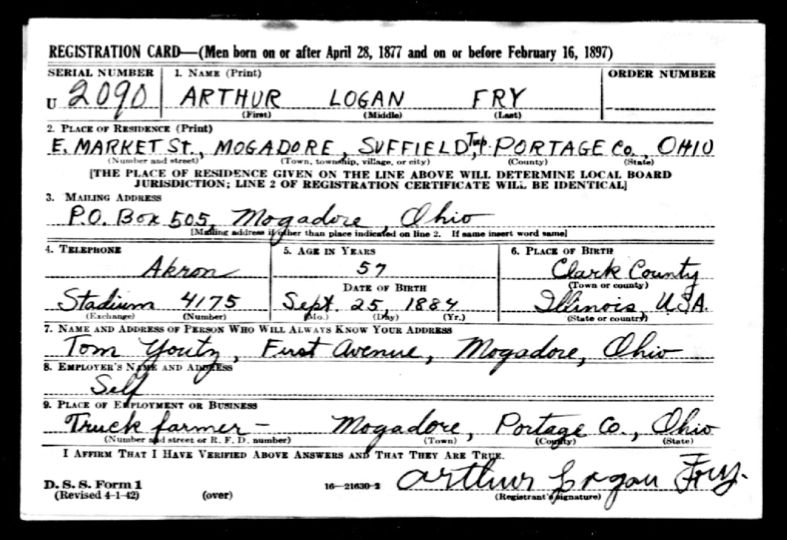 REGISTRATION CARD—(Men born on or after April 28, 1877 and on or before February 16, 1897)
SERIAL NUMBER 1. NAME (Print) ORDER NUMBER
U 2090 ARTHUR LOGAN FRY
(First) (Middle) (Last)
2. PLACE OF RESIDENCE (Print)
E. MARKET ST., MOGADORE, SUFFIELD, Twp. PORTAGE Co., OHIO
(Number and street) (Town, township, village, or city) (County) (State)
[THE PLACE OF RESIDENCE GIVEN ON THE LINE ABOVE WILL DETERMINE LOCAL BOARD
JURISDICTION; LINE 2 OF REGISTRATION CERTIFICATE WILL BE IDENTICAL]
3. MAILING ADDRESS
P.O. Box 505, Mogadore, Ohio
[Mailing address if other than place indicated on line 2. If same insert word same]
4. TELEPHONE 5. AGE IN YEARS 6. PLACE OF BIRTH
Akron 57 Clark County
DATE OF BIRTH (Town or county)
Stadium 4175 Sept. 25, 1884 Illinois, USA.
(Exchange) (Number) (Mo.) (Day) (Yr.) (State or country)
7. NAME AND ADDRESS OF PERSON WHO WILL ALWAYS KNOW YOUR ADDRESS
Tom Youtz, First Avenue, Mogadore, Ohio
8. EMPLOYER'S NAME AND ADDRESS
Self
9. PLACE OF EMPLOYMENT OR BUSINESS
Truck farmer - Mogadore, Portage Co., Ohio
(Number and street or R. F. D. number) (Town) (County) (State)
I AFFIRM THAT I HAVE VERIFIED ABOVE ANSWERS AND THAT THEY ARE TRUE.
Arthur Logan Fry.
D. S. S. Form 1
(Revised 4-1-42) (over) 16—21630-2 (Registrant's signature)